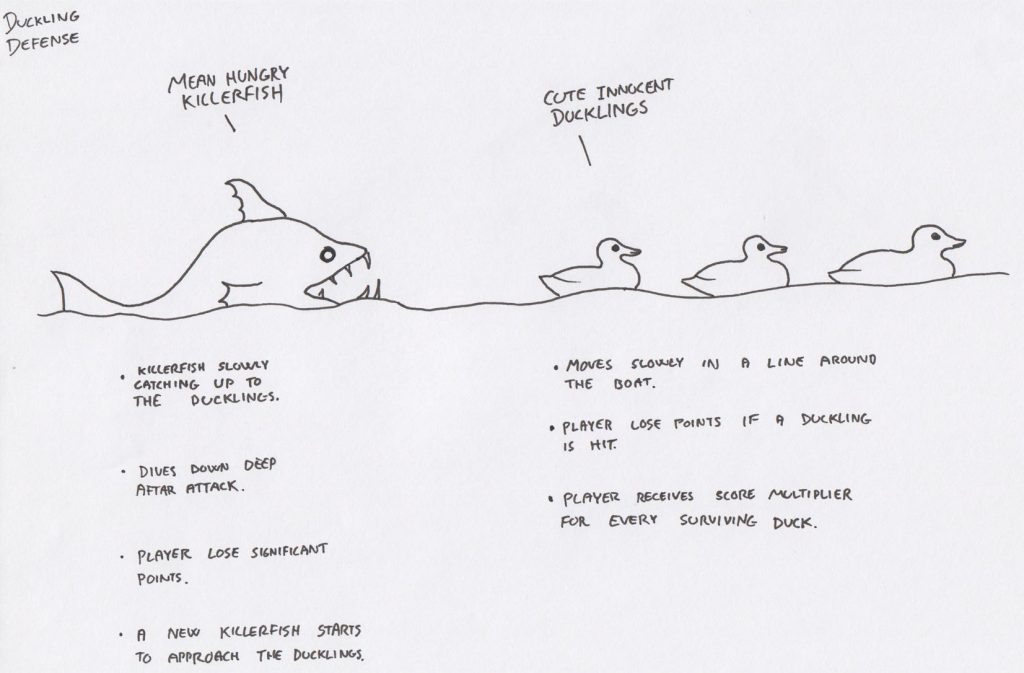 DUCKLING
DEFENSE
MEAN HUNGRY
KILLERFISH
CUTE INNOCENT
DUCKLINGS
• KILLERFISH SLOWLY
CATCHING UP TO
THE DUCKLINGS.
• DIVES DOWN DEEP
AFTAR ATTACK.
• PLAYER LOSE SIGNIFICANT
POINTS.
• A NEW KILLERFISH STARTS
TO APPROACH THE DUCKLINGS.
• MOVES SLOWLY IN A LINE AROUND
THE BOAT.
• PLAYER LOSE POINTS IF A DUCKLING
IS HIT.
• PLAYER RECEIVES SCORE MULTIPLIER
FOR EVERY SURVIVING DUCK.